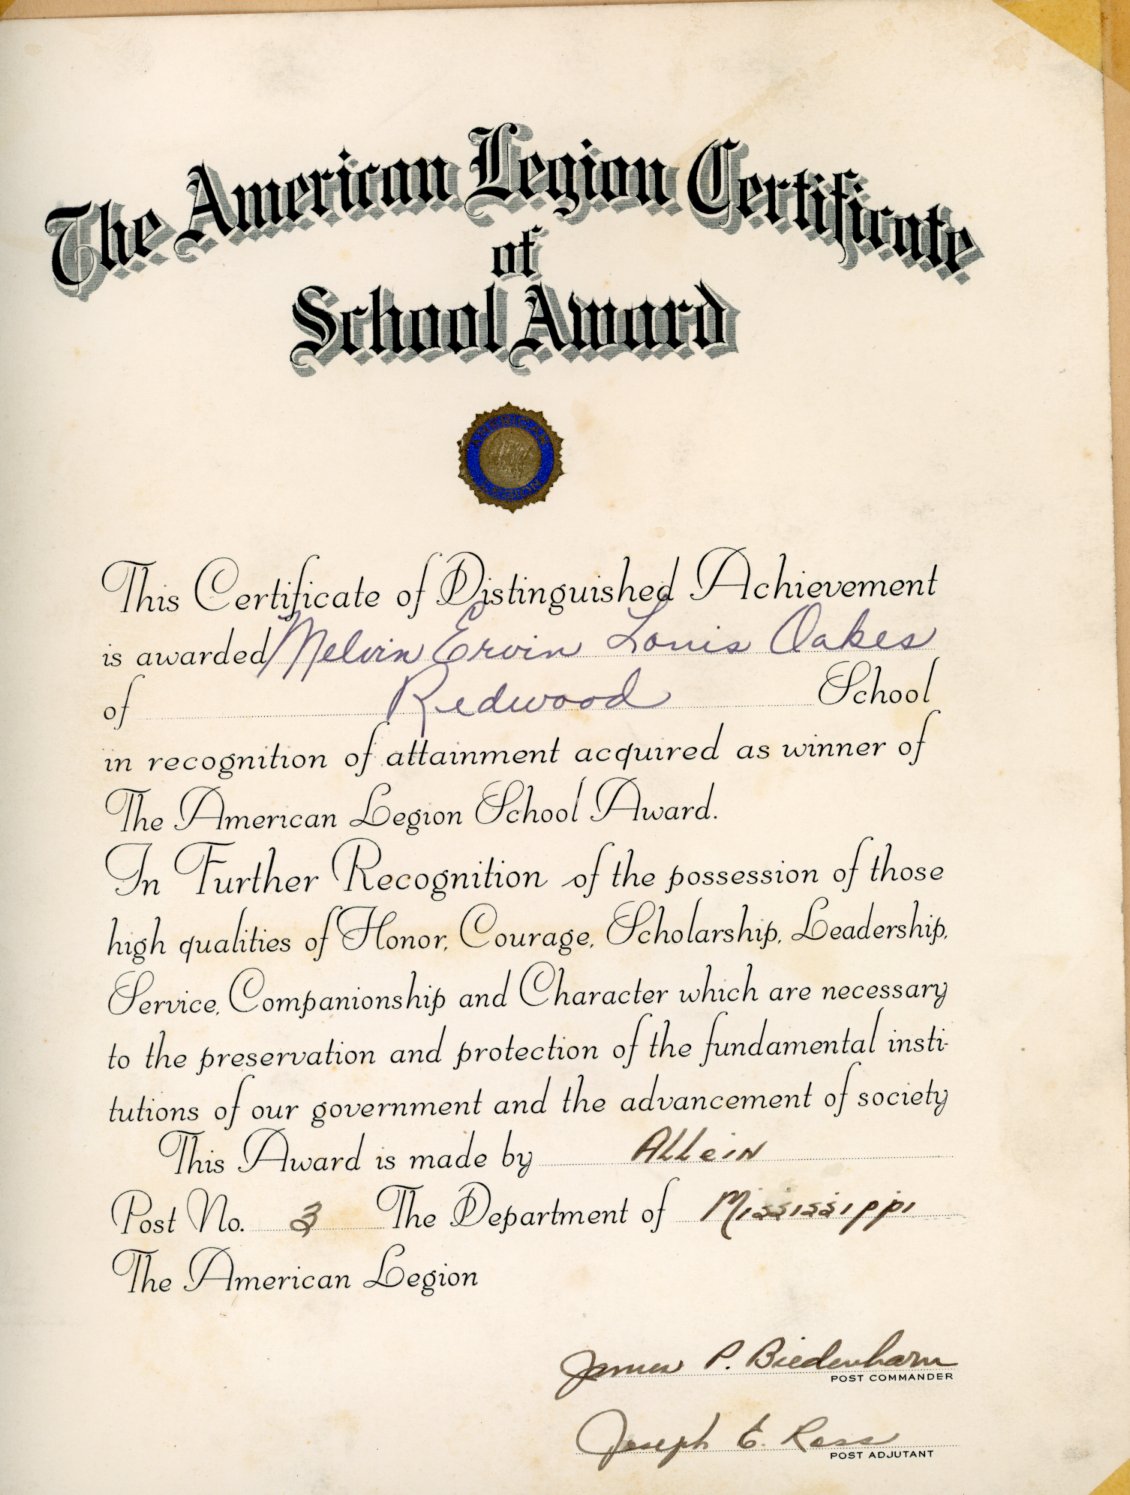 The American Legion Certificate
of
School Award
This Certificate of Distinguished Achievement
is awarded Melvin Ervin Louis Oakes
of Redwood School
in recognition of attainment acquired as winner of
The American Legion School Award.
In Further Recognition of the possession of those
high qualities of Honor, Courage, Scholarship, Leadership,
Service, Companionship and Character which are necessary
to the preservation and protection of the fundamental insti-
tutions of our government and the advancement of society
This Award is made by Allein
Post No. 3 The Department of Mississippi
The American Legion
James P. Biedenharn
POST COMMANDER
Joseph E. Ross
POST ADJUTANT